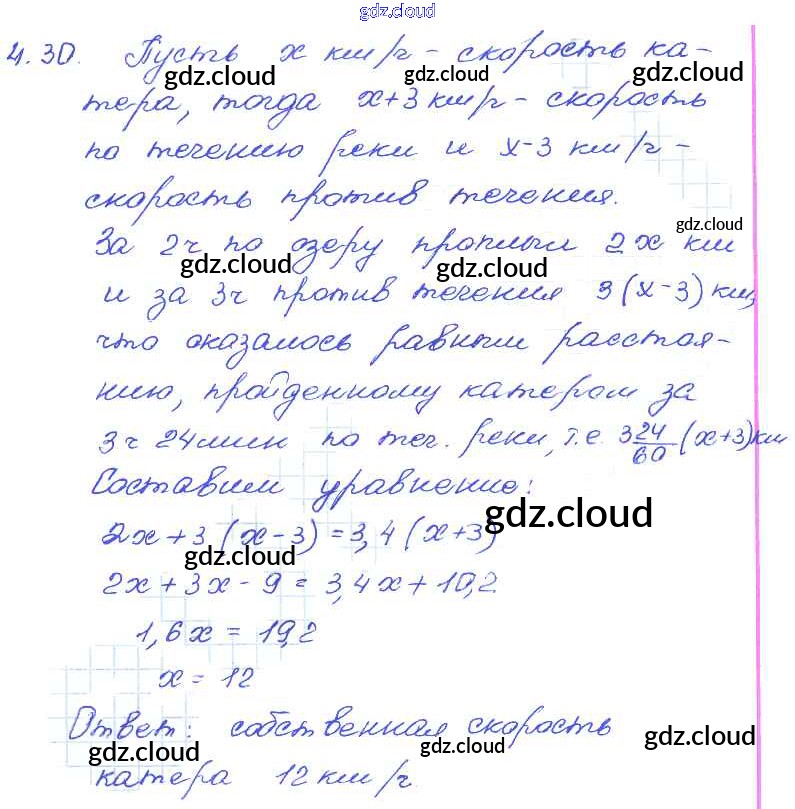 gdz.cloud
4.30. Пусть x км/ч - скорость ка-
gdz.cloud gdz.cloud gdz.cloud
тера, тогда x+3 км/ч - скорость
по течению реки и x-3 км/ч -
скорость против течения.
gdz.cloud
За 2ч по озеру проплыл 2x км
gdz.cloud gdz.cloud
и за 3ч против течения 3(x-3) км,
что оказалось равным расстоя-
нию, пройденному катером за
3ч 24мин по теч. реки, т.е. 3 24/60 (x+3) км
Составим уравнение:
gdz.cloud
2x+3(x-3)=3,4(x+3)
gdz.cloud
2x+3x-9=3,4x+10,2
1,6x=19,2
x=12
Ответ: собственная скорость
gdz.cloud gdz.cloud gdz.cloud
катера 12 км/ч.